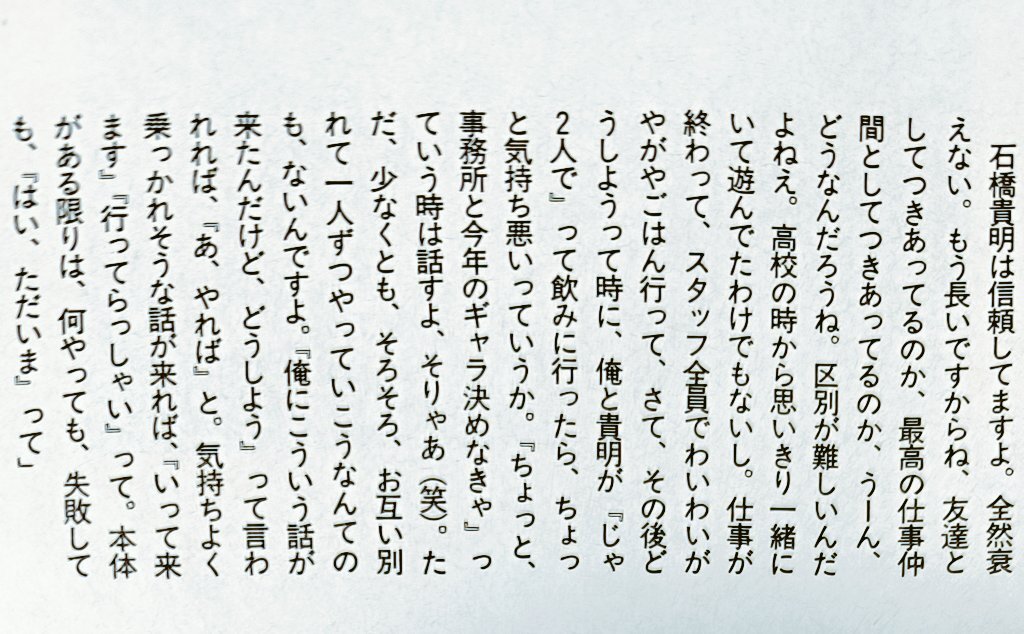 石橋貴明は信頼してますよ。全然衰
えない。もう長いですからね、友達と
してつきあってるのか、最高の仕事仲
間としてつきあってるのか、うーん、
どうなんだろうね。区別が難しいんだ
よねえ。高校の時から思いきり一緒に
いて遊んでたわけでもないし。仕事が
終わって、スタッフ全員でわいわいが
やがやごはん行って、さて、その後ど
うしようって時に、俺と貴明が『じゃ
2人で』って飲みに行ったら、ちょっ
と気持ち悪いっていうか。『ちょっと、
事務所と今年のギャラ決めなきゃ』っ
ていう時は話すよ、そりゃあ(笑)。た
だ、少なくとも、そろそろ、お互い別
れて一人ずつやっていこうなんての
も、ないんですよ。『俺にこういう話が
来たんだけど、どうしよう』って言わ
れれば、『あ、やれば』と。気持ちよく
乗っかれそうな話が来れば、『いって来
ます』『行ってらっしゃい』って。本体
がある限りは、何やっても、失敗して
も、『はい、ただいま』って」